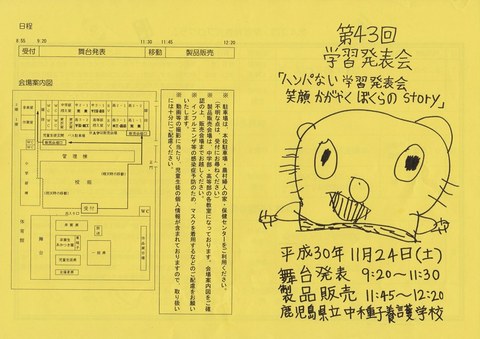 日程
8:55
9:20
11:30
11:45
12:20
受付
舞台発表
移動
製品販売
会場案内図
管理棟
校庭
受付
体育館
舞台
一般席
※駐車場は、本校駐車場・農村婦人の家・保健センターをご利用ください。
(不明な点は、受付にお尋ねください)
※製品販売会場は、中学部・高等部の各教室になっております。会場案内図をご確
認の上、販売会場までお越しください。
※インフルエンザ等の感染症予防のため、マスクを着用するなどのご配慮をお願い
いたします。
※動画等の撮影に当たり、児童生徒の個人情報が含まれておりますので、取り扱い
には十分にご配慮ください。
第43回
学習発表会
「ハンパない学習発表会
笑顔かがやくぼくらのstory」
平成30年11月24日(土)
舞台発表 9:20〜11:30
製品販売 11:45〜12:20
鹿児島県立中種子養護学校